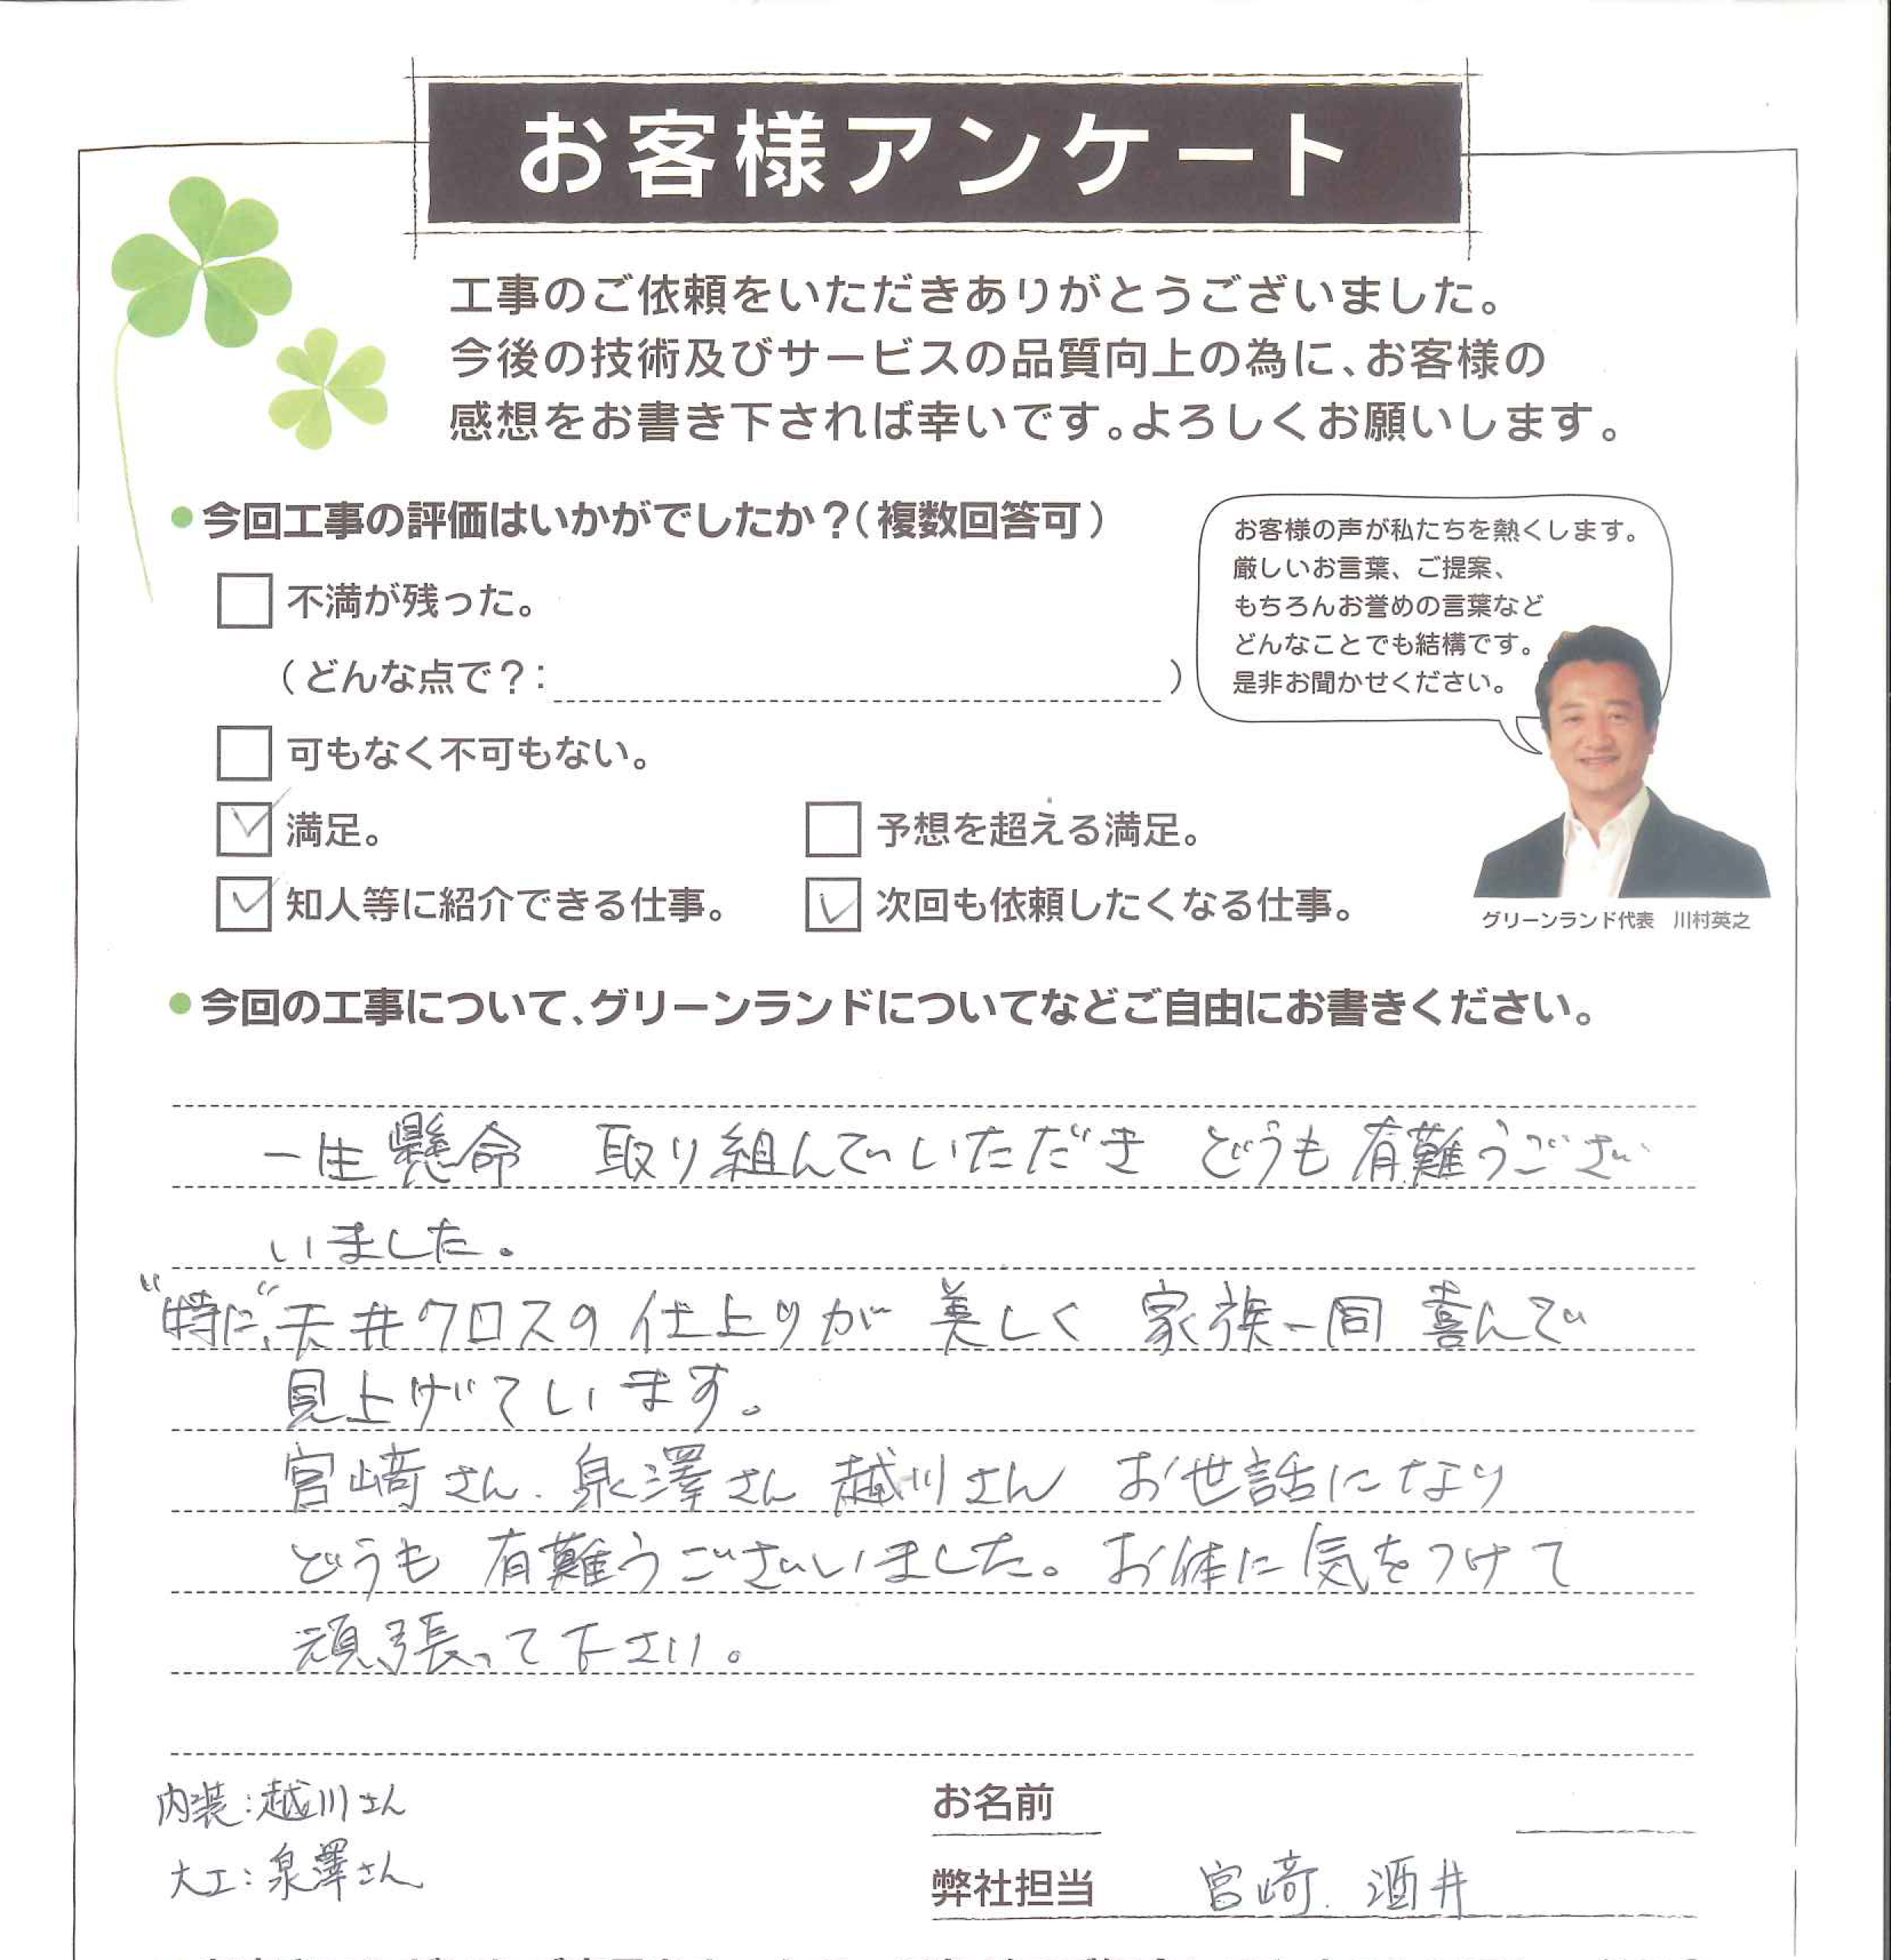 お客様アンケート
工事のご依頼をいただきありがとうございました。
今後の技術及びサービスの品質向上の為に、お客様の
感想をお書き下されば幸いです。よろしくお願いします。
●今回工事の評価はいかがでしたか？（複数回答可）
不満が残った。
（どんな点で？：　）
可もなく不可もない。
満足。
予想を超える満足。
知人等に紹介できる仕事。
次回も依頼したくなる仕事。
お客様の声が私たちを熱くします。
厳しいお言葉、ご提案、
もちろんお誉めの言葉など
どんなことでも結構です。
是非お聞かせください。
グリーンランド代表　川村英之
●今回の工事について、グリーンランドについてなどご自由にお書きください。
一生懸命　取り組んでいただき　どうも有難うござい
いました。
“特に”、天井クロスの仕上りが美しく　家族一同　喜んで
見上げています。
宮﨑さん、泉澤さん　越川さん　お世話になり
どうも　有難うございました。お体に気をつけて
頑張って下さい。
内装：越川さん
大工：泉澤さん
お名前
弊社担当　宮﨑、酒井